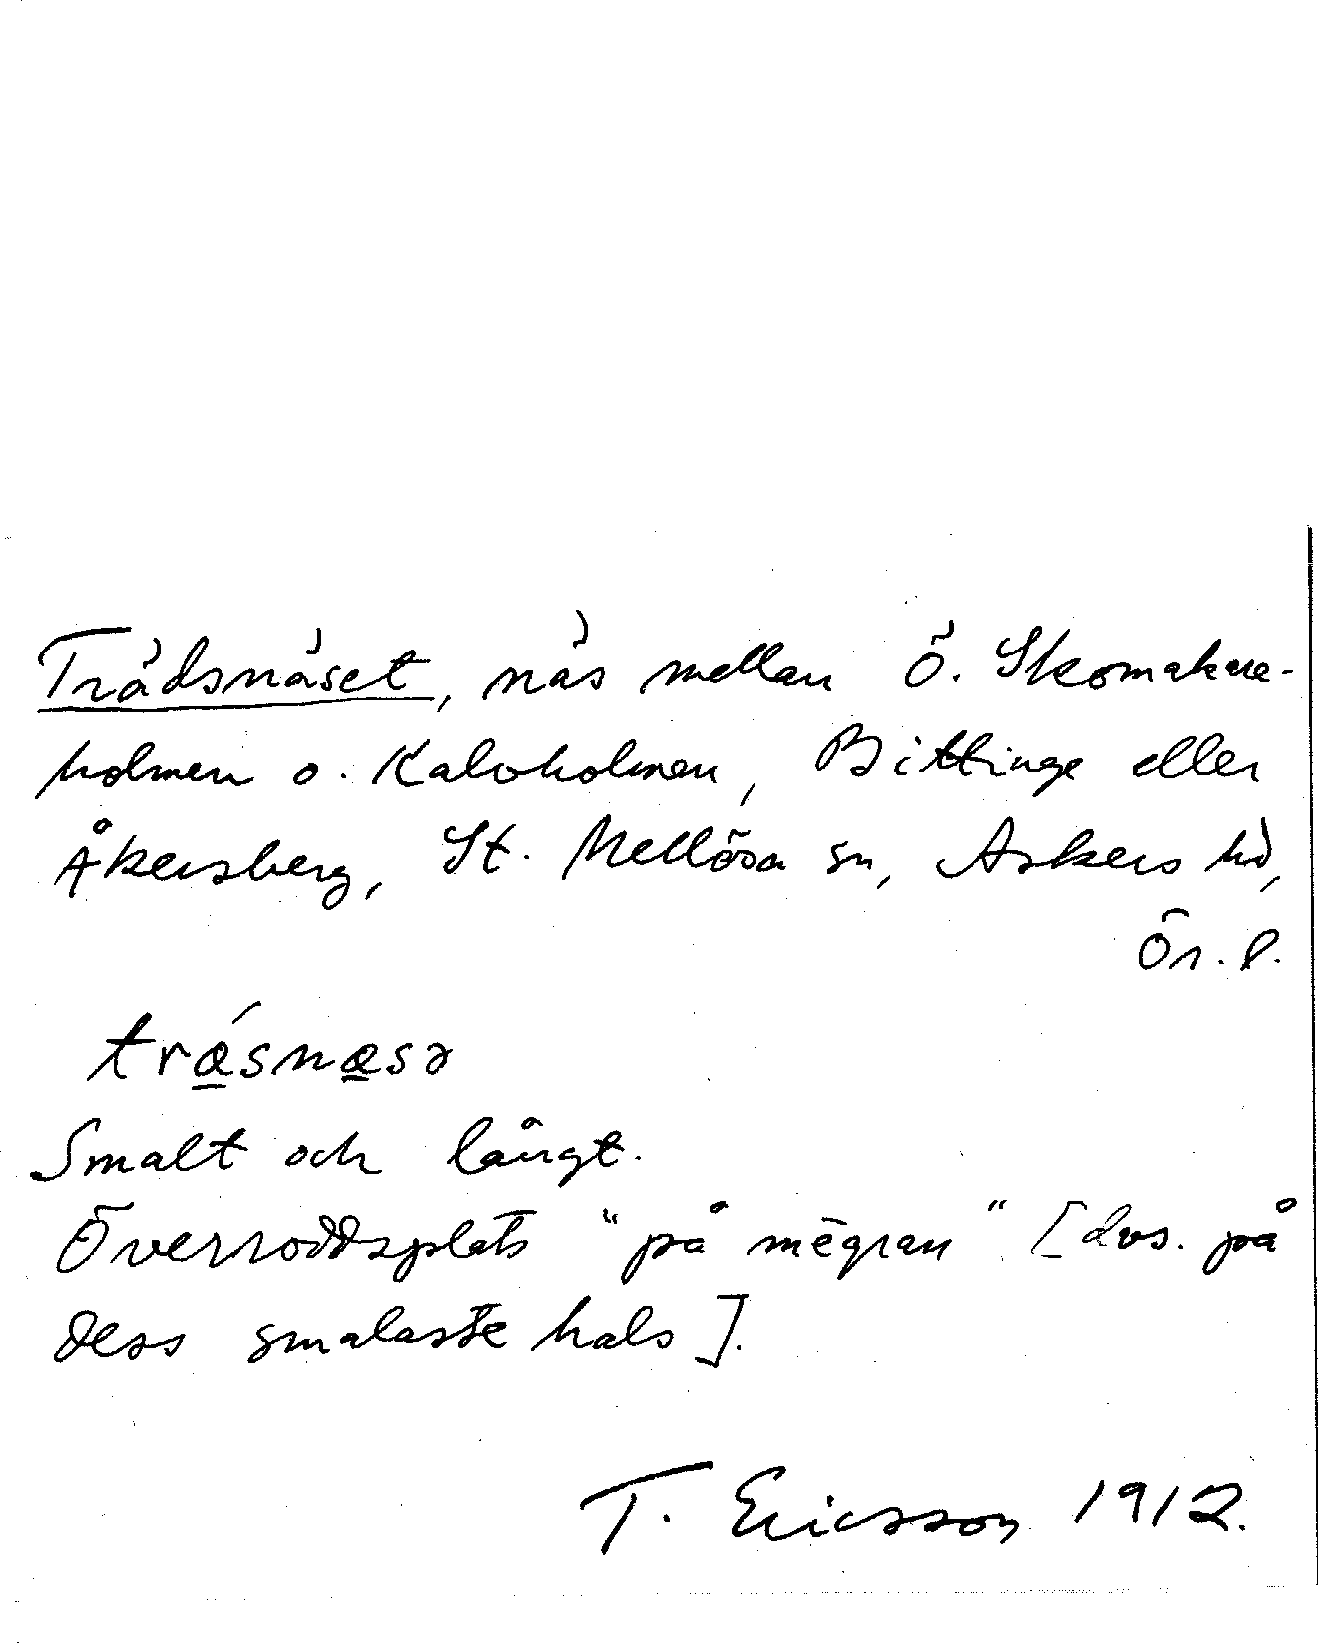 Trädsnäset, näs mellan Ö. Skomakare-
holmen o. Kalvholmen, Bittinge eller
Åkersberg, St. Mellösa sn, Askers hd,
Ör. l.
trǽ̲snæ̲sə
Smalt och långt.
Överroddsplats "på mēgran" [dvs. på
dess smalaste hals].
T. Ericsson 1912.